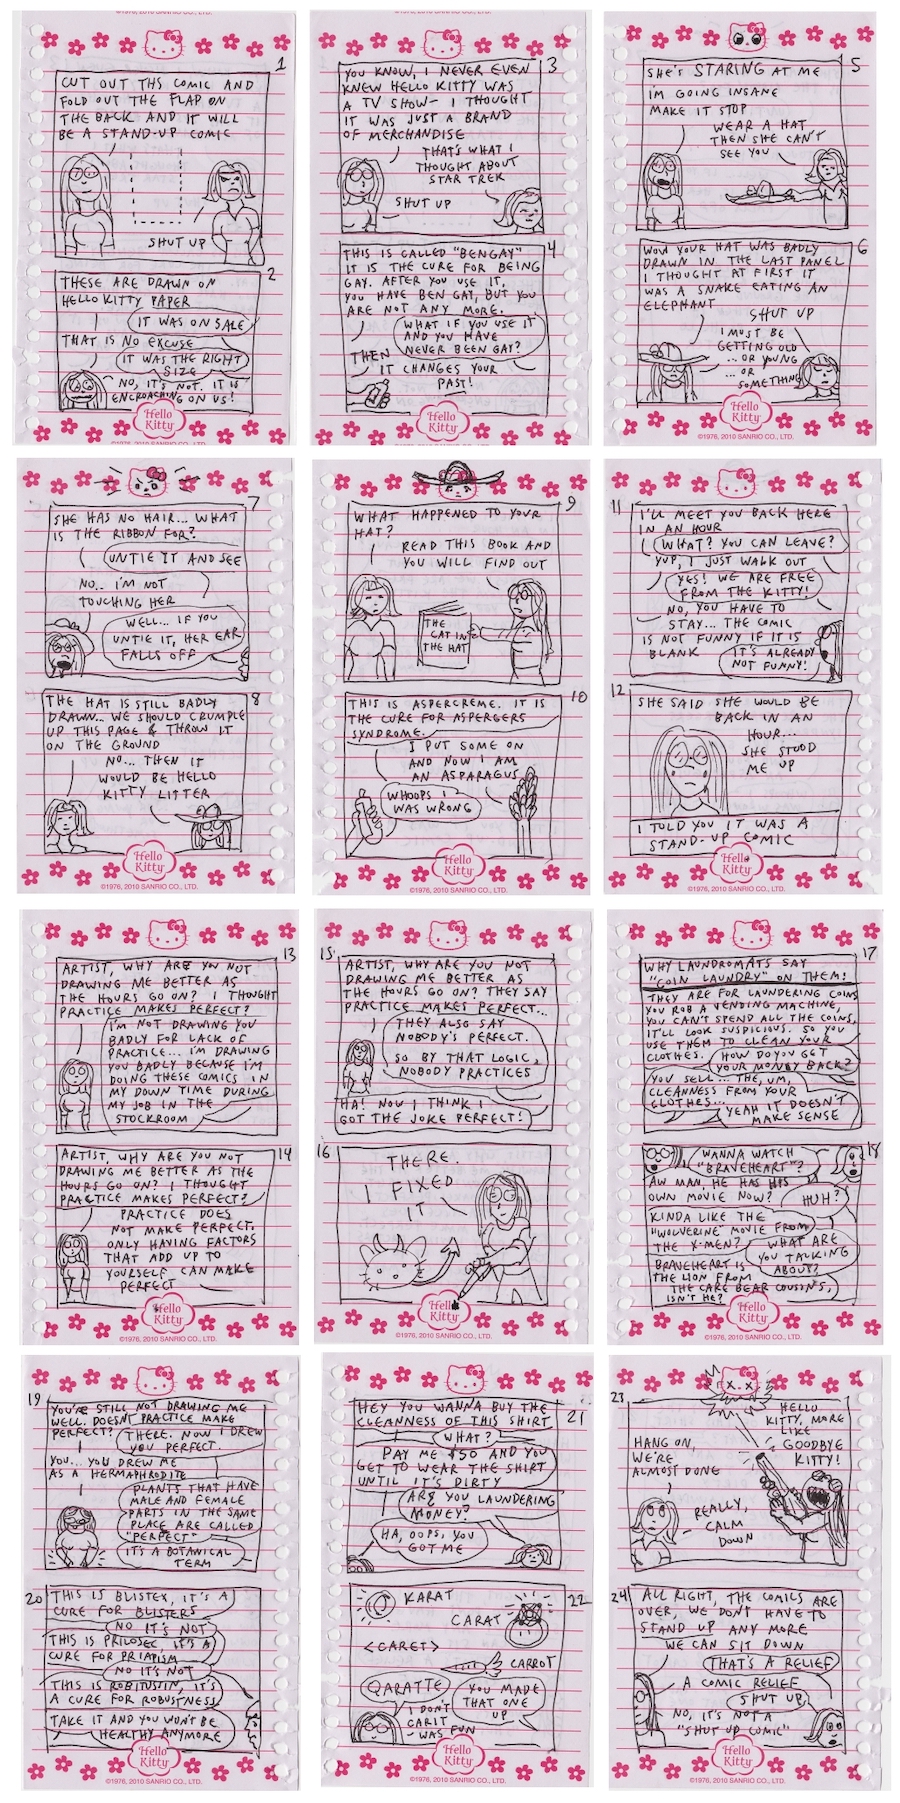 1
CUT OUT THS COMIC AND
FOLD OUT THE FLAP ON
THE BACK AND IT WILL
BE A STAND-UP COMIC
SHUT UP
2
THESE ARE DRAWN ON
HELLO KITTY PAPER
IT WAS ON SALE
THAT IS NO EXCUSE
IT WAS THE RIGHT
SIZE
NO, IT'S NOT. IT IS
ENCROACHING ON US!
Hello
Kitty
©1976, 2010 SANRIO CO., LTD.
3
YOU KNOW, I NEVER EVEN
KNEW HELLO KITTY WAS
A TV SHOW- I THOUGHT
IT WAS JUST A BRAND
OF MERCHANDISE
THAT'S WHAT I
THOUGHT ABOUT
STAR TREK
SHUT UP
4
THIS IS CALLED "BENGAY"
IT IS THE CURE FOR BEING
GAY. AFTER YOU USE IT,
YOU HAVE BEN GAY, BUT YOU
ARE NOT ANY MORE.
WHAT IF YOU USE IT
AND YOU HAVE
NEVER BEEN GAY?
THEN
IT CHANGES YOUR
PAST!
Hello
Kitty
©1976, 2010 SANRIO CO., LTD.
5
SHE'S STARING AT ME
IM GOING INSANE
MAKE IT STOP
WEAR A HAT
THEN SHE CAN'T
SEE YOU
6
WOW YOUR HAT WAS BADLY
DRAWN IN THE LAST PANEL
I THOUGHT AT FIRST IT
WAS A SNAKE EATING AN
ELEPHANT
SHUT UP
I MUST BE
GETTING OLD
... OR YOUNG
... OR
SOMETHING
Hello
Kitty
©1976, 2010 SANRIO CO., LTD.
7
SHE HAS NO HAIR... WHAT
IS THE RIBBON FOR?
UNTIE IT AND SEE
NO.. I'M NOT
TOUCHING HER
WELL... IF YOU
UNTIE IT, HER EAR
FALLS OFF
8
THE HAT IS STILL BADLY
DRAWN... WE SHOULD CRUMPLE
UP THIS PAGE & THROW IT
ON THE GROUND
NO... THEN IT
WOULD BE HELLO
KITTY LITTER
Hello
Kitty
©1976, 2010 SANRIO CO., LTD.
9
WHAT HAPPENED TO YOUR
HAT?
READ THIS BOOK AND
YOU WILL FIND OUT
THE
CAT IN
THE HAT
10
THIS IS ASPERCREME. IT IS
THE CURE FOR ASPERGERS
SYNDROME.
I PUT SOME ON
AND NOW I AM
AN ASPARAGUS
WHOOPS I
WAS WRONG
Hello
Kitty
©1976, 2010 SANRIO CO., LTD.
11
I'LL MEET YOU BACK HERE
IN AN HOUR
WHAT? YOU CAN LEAVE?
YUP, I JUST WALK OUT
YES! WE ARE FREE
FROM THE KITTY!
NO, YOU HAVE TO
STAY... THE COMIC
IS NOT FUNNY IF IT IS
BLANK
IT'S ALREADY
NOT FUNNY!
12
SHE SAID SHE WOULD BE
BACK IN AN
HOUR...
SHE STOOD
ME UP
I TOLD YOU IT WAS A
STAND-UP COMIC
Hello
Kitty
©1976, 2010 SANRIO CO., LTD.
13
ARTIST, WHY ARE YOU NOT
DRAWING ME BETTER AS
THE HOURS GO ON? I THOUGHT
PRACTICE MAKES PERFECT?
I'M NOT DRAWING YOU
BADLY FOR LACK OF
PRACTICE... I'M DRAWING
YOU BADLY BECAUSE I'M
DOING THESE COMICS IN
MY DOWN TIME DURING
MY JOB IN THE
STOCKROOM
14
ARTIST, WHY ARE YOU NOT
DRAWING ME BETTER AS THE
HOURS GO ON? I THOUGHT
PRACTICE MAKES PERFECT?
PRACTICE DOES
NOT MAKE PERFECT.
ONLY HAVING FACTORS
THAT ADD UP TO
YOURSELF CAN MAKE
PERFECT
Hello
Kitty
©1976, 2010 SANRIO CO., LTD.
15
ARTIST, WHY ARE YOU NOT
DRAWING ME BETTER AS
THE HOURS GO ON? THEY SAY
PRACTICE MAKES PERFECT...
THEY ALSO SAY
NOBODY'S PERFECT.
SO BY THAT LOGIC,
NOBODY PRACTICES
HA! NOW I THINK I
GOT THE JOKE PERFECT!
16
THERE
I FIXED
IT
Hello
Kitty
©1976, 2010 SANRIO CO., LTD.
17
WHY LAUNDROMATS SAY
"COIN LAUNDRY" ON THEM!
THEY ARE FOR LAUNDERING COINS
YOU ROB A VENDING MACHINE,
YOU CAN'T SPEND ALL THE COINS,
IT'LL LOOK SUSPICIOUS. SO YOU
USE THEM TO CLEAN YOUR
CLOTHES.
HOW DO YOU GET
YOUR MONEY BACK?
YOU SELL... THE, UM,
CLEANNESS FROM YOUR
CLOTHES...
YEAH IT DOESN'T
MAKE SENSE
18
WANNA WATCH
"BRAVEHEART"?
AW MAN, HE HAS HIS
OWN MOVIE NOW?
HUH?
KINDA LIKE THE
"WOLVERINE" MOVIE FROM
THE X-MEN?
WHAT ARE
YOU TALKING
ABOUT?
BRAVEHEART IS
THE LION FROM
THE CARE BEAR COUSINS,
ISN'T HE?
Hello
Kitty
©1976, 2010 SANRIO CO., LTD.
19
YOU'RE STILL NOT DRAWING ME
WELL. DOESN'T PRACTICE MAKE
PERFECT?
THERE. NOW I DREW
YOU PERFECT.
YOU... YOU DREW ME
AS A HERMAPHRODITE
PLANTS THAT HAVE
MALE AND FEMALE
PARTS IN THE SAME
PLACE ARE CALLED
"PERFECT"
IT'S A BOTANICAL
TERM
20
THIS IS BLISTEX, IT'S A
CURE FOR BLISTERS
NO IT'S NOT
THIS IS PRILOSEC, IT'S A
CURE FOR PRIAPISM
NO IT'S NOT
THIS IS ROBITUSSIN, IT'S
A CURE FOR ROBUSTNESS
TAKE IT AND YOU WON'T BE
HEALTHY ANYMORE
Hello
Kitty
©1976, 2010 SANRIO CO., LTD.
21
HEY YOU WANNA BUY THE
CLEANNESS OF THIS SHIRT
WHAT?
PAY ME $50 AND YOU
GET TO WEAR THE SHIRT
UNTIL IT'S DIRTY
ARE YOU LAUNDERING
MONEY?
HA, OOPS, YOU
GOT ME
22
KARAT
CARAT
<CARET>
CARROT
QARATTE
YOU MADE
THAT ONE
UP
I DON'T
CARIT
- WAS FUN
Hello
Kitty
©1976, 2010 SANRIO CO., LTD.
23
HELLO
KITTY, MORE
LIKE
GOODBYE
KITTY!
HANG ON,
WE'RE
ALMOST DONE
REALLY,
CALM
DOWN
24
ALL RIGHT, THE COMICS ARE
OVER, WE DON'T HAVE TO
STAND UP ANY MORE
WE CAN SIT DOWN
THAT'S A RELIEF
A COMIC RELIEF
SHUT UP
NO, IT'S NOT A
"SHUT UP COMIC"
Hello
Kitty
©1976, 2010 SANRIO CO., LTD.